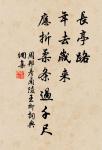 長亭路
年去歲来
應折柔条過千尺
周邦彥蘭陵王柳詞典